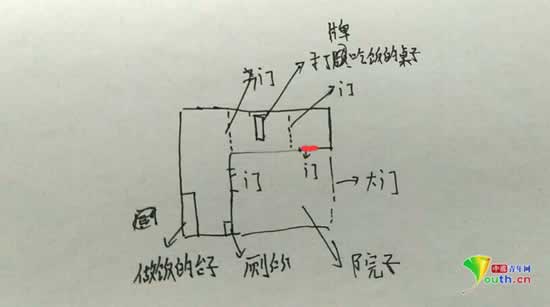 牌
打 吃饭的桌子
门
门
门
大门
做饭的台子
厕所
院子
中国青年网
Youth.cn